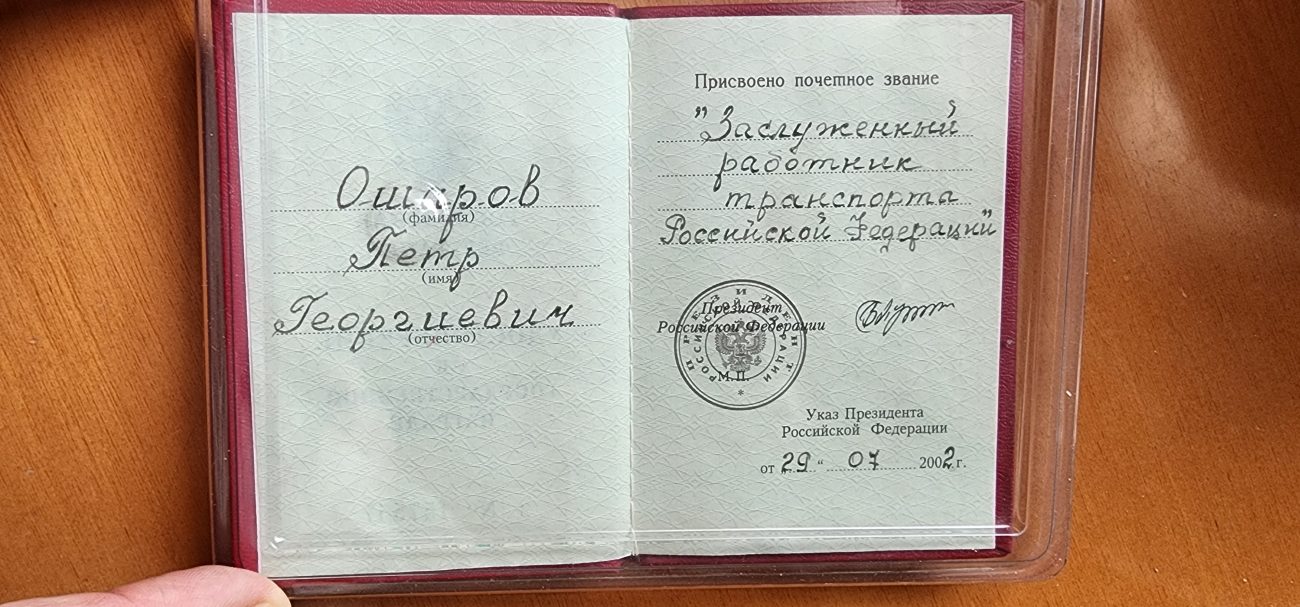 Ошаров
(фамилия)
Петр
(имя)
Георгиевич
(отчество)
Присвоено почетное звание
"Заслуженный
работник
транспорта
Российской Федерации"
ПРЕЗИДЕНТ
РОССИЙСКОЙ ФЕДЕРАЦИИ
Президент
Российской Федерации
М.П.
Указ Президента
Российской Федерации
от „29“ 07 2002 г.